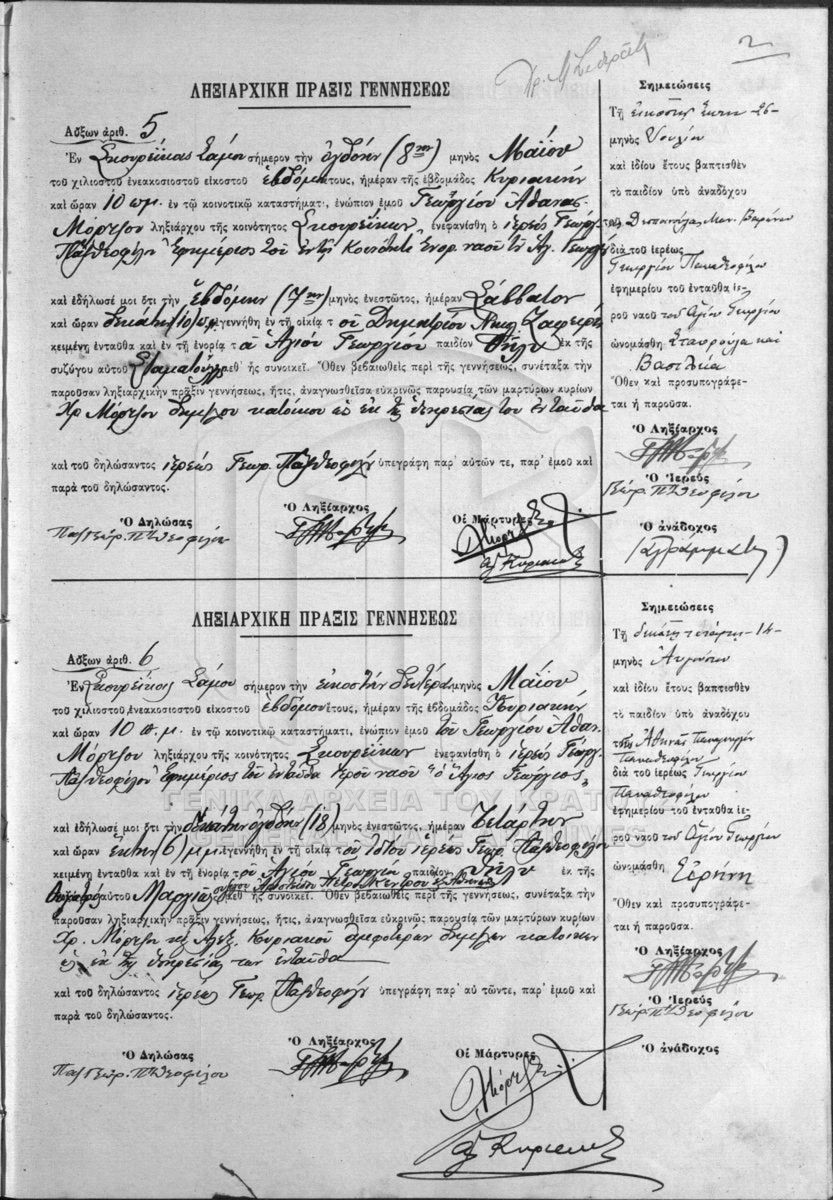 2
ΛΗΞΙΑΡΧΙΚΗ ΠΡΑΞΙΣ ΓΕΝΝΗΣΕΩΣ
Αὔξων ἀριθ. 5
Ἐν Σκουρέϊκας Σάμου σήμερον τὴν ὀγδόην (8ην) μηνὸς Μαΐου
τοῦ χιλιοστοῦ ἐνεακοσιοστοῦ εἰκοστοῦ ἑβδόμου ἔτους, ἡμέραν τῆς ἑβδομάδος Κυριακὴν
καὶ ὥραν 10 π.μ. ἐν τῷ κοινοτικῷ καταστήματι, ἐνώπιον ἐμοῦ Γεωργίου Ἀθανασ.
Μόρτζου ληξιάρχου τῆς κοινότητος Σκουρεΐκων, ἐνεφανίσθη ὁ ἱερεὺς Γεώργ.
Παπᾶθεοφίλου Ἐφημέριος τοῦ ἐν τῇ Κοινότητι Ἐνορ. ναοῦ τοῦ Ἁγ. Γεωργίου
καὶ ἐδήλωσέ μοι ὅτι τὴν ἑβδόμην (7ην) μηνὸς ἐνεστῶτος, ἡμέραν Σάββατον
καὶ ὥραν δεκάτην (10) π.μ. ἐγεννήθη ἐν τῇ οἰκίᾳ τοῦ Δημητρίου Νικολ. Ζαφείρη
κειμένῃ ἐνταῦθα καὶ ἐν τῇ ἐνορίᾳ τοῦ Ἁγίου Γεωργίου παιδίον θῆλυ ἐκ τῆς
συζύγου αὐτοῦ Σταματούλας μεθ' ἧς συνοικεῖ. Ὅθεν βεβαιωθεὶς περὶ τῆς γεννήσεως, συνέταξα τὴν
παροῦσαν ληξιαρχικὴν πρᾶξιν γεννήσεως, ἥτις, ἀναγνωσθεῖσα εὐκρινῶς παρουσίᾳ τῶν μαρτύρων κυρίων
Χρ. Μόρτζου
καὶ τοῦ δηλώσαντος ἱερέως Γεωρ. Παπᾶθεοφίλου ὑπεγράφη παρ' αὐτῶν τε, παρ' ἐμοῦ καὶ
παρὰ τοῦ δηλώσαντος.
Ὁ Δηλώσας
Ὁ Ληξίαρχος
Οἱ Μάρτυρες
Παπ Γεώρ. Π Θεοφίλου
Αλ Κυριακοῦ
Σημειώσεις
Τῇ εἰκοστῇ ἕκτῃ 26
μηνὸς Ἰουλίου
καὶ ἰδίου ἔτους βαπτισθὲν
τὸ παιδίον ὑπὸ ἀναδόχου
διὰ τοῦ ἱερέως
Γεωργίου Παπαθεοφίλου
ἐφημερίου τοῦ ἐνταῦθα ἱε-
ροῦ ναοῦ τοῦ Ἁγίου Γεωργίου
ὠνομάσθη Σταυρούλα καὶ
Βασιλεία
Ὅθεν καὶ προσυπογράφε-
ται ἡ παροῦσα.
Ὁ Ληξίαρχος
Ὁ Ἱερεὺς
Γεώρ. Π Θεοφίλου
Ὁ ἀνάδοχος
(ἀγράμματος)
ΛΗΞΙΑΡΧΙΚΗ ΠΡΑΞΙΣ ΓΕΝΝΗΣΕΩΣ
Αὔξων ἀριθ. 6
Ἐν Σκουρέϊκας Σάμου σήμερον τὴν εἰκοστὴν δευτέραν μηνὸς Μαΐου
τοῦ χιλιοστοῦ ἐνεακοσιοστοῦ εἰκοστοῦ ἑβδόμου ἔτους, ἡμέραν τῆς ἑβδομάδος Κυριακὴν
καὶ ὥραν 10 π.μ. ἐν τῷ κοινοτικῷ καταστήματι, ἐνώπιον ἐμοῦ τοῦ Γεωργίου Ἀθαν.
Μόρτζου ληξιάρχου τῆς κοινότητος Σκουρεΐκων ἐνεφανίσθη ὁ ἱερεὺς Γεώργ.
Παπᾶθεοφίλου Ἐφημέριος τοῦ ἐνταῦθα ἱεροῦ ναοῦ "ὁ Ἅγιος Γεώργιος„
καὶ ἐδήλωσέ μοι ὅτι τὴν δεκάτην ὀγδόην (18) μηνὸς ἐνεστῶτος, ἡμέραν Τετάρτην
καὶ ὥραν ἕκτην (6) μ.μ. ἐγεννήθη ἐν τῇ οἰκίᾳ τοῦ ἰδίου ἱερέως Γεωρ. Παπᾶθεοφίλου
κειμένῃ ἐνταῦθα καὶ ἐν τῇ ἐνορίᾳ τοῦ Ἁγίου Γεωργίου παιδίον θῆλυ ἐκ τῆς
θυγατρὸς αὐτοῦ Μαρίας μεθ' ἧς συνοικεῖ. Ὅθεν βεβαιωθεὶς περὶ τῆς γεννήσεως, συνέταξα τὴν
παροῦσαν ληξιαρχικὴν πρᾶξιν γεννήσεως, ἥτις, ἀναγνωσθεῖσα εὐκρινῶς παρουσίᾳ τῶν μαρτύρων κυρίων
Χρ. Μόρτζου καὶ Ἀλεξ. Κυριακοῦ ἀμφοτέρων δημοτῶν κατοίκων
ἐνταῦθα
καὶ τοῦ δηλώσαντος ἱερέως Γεωρ. Παπᾶθεοφίλου ὑπεγράφη παρ' αὐτῶν τε, παρ' ἐμοῦ καὶ
παρὰ τοῦ δηλώσαντος.
Ὁ Δηλώσας
Ὁ Ληξίαρχος
Οἱ Μάρτυρες
Παπ Γεώρ. Π Θεοφίλου
Αλ Κυριακοῦ
Σημειώσεις
Τῇ δεκάτῃ τετάρτῃ 14
μηνὸς Αὐγούστου
καὶ ἰδίου ἔτους βαπτισθὲν
τὸ παιδίον ὑπὸ ἀναδόχου
τῆς Ἀθηνᾶς
Παπαθεοφίλου
διὰ τοῦ ἱερέως Γεωργίου
Παπαθεοφίλου
ἐφημερίου τοῦ ἐνταῦθα ἱε-
ροῦ ναοῦ τοῦ Ἁγίου Γεωργίου
ὠνομάσθη Εἰρήνη
Ὅθεν καὶ προσυπογράφε-
ται ἡ παροῦσα.
Ὁ Ληξίαρχος
Ὁ Ἱερεὺς
Γεώρ. Π Θεοφίλου
Ὁ ἀνάδοχος
ΓΕΝΙΚΑ ΑΡΧΕΙΑ ΤΟΥ ΚΡΑΤΟΥΣ